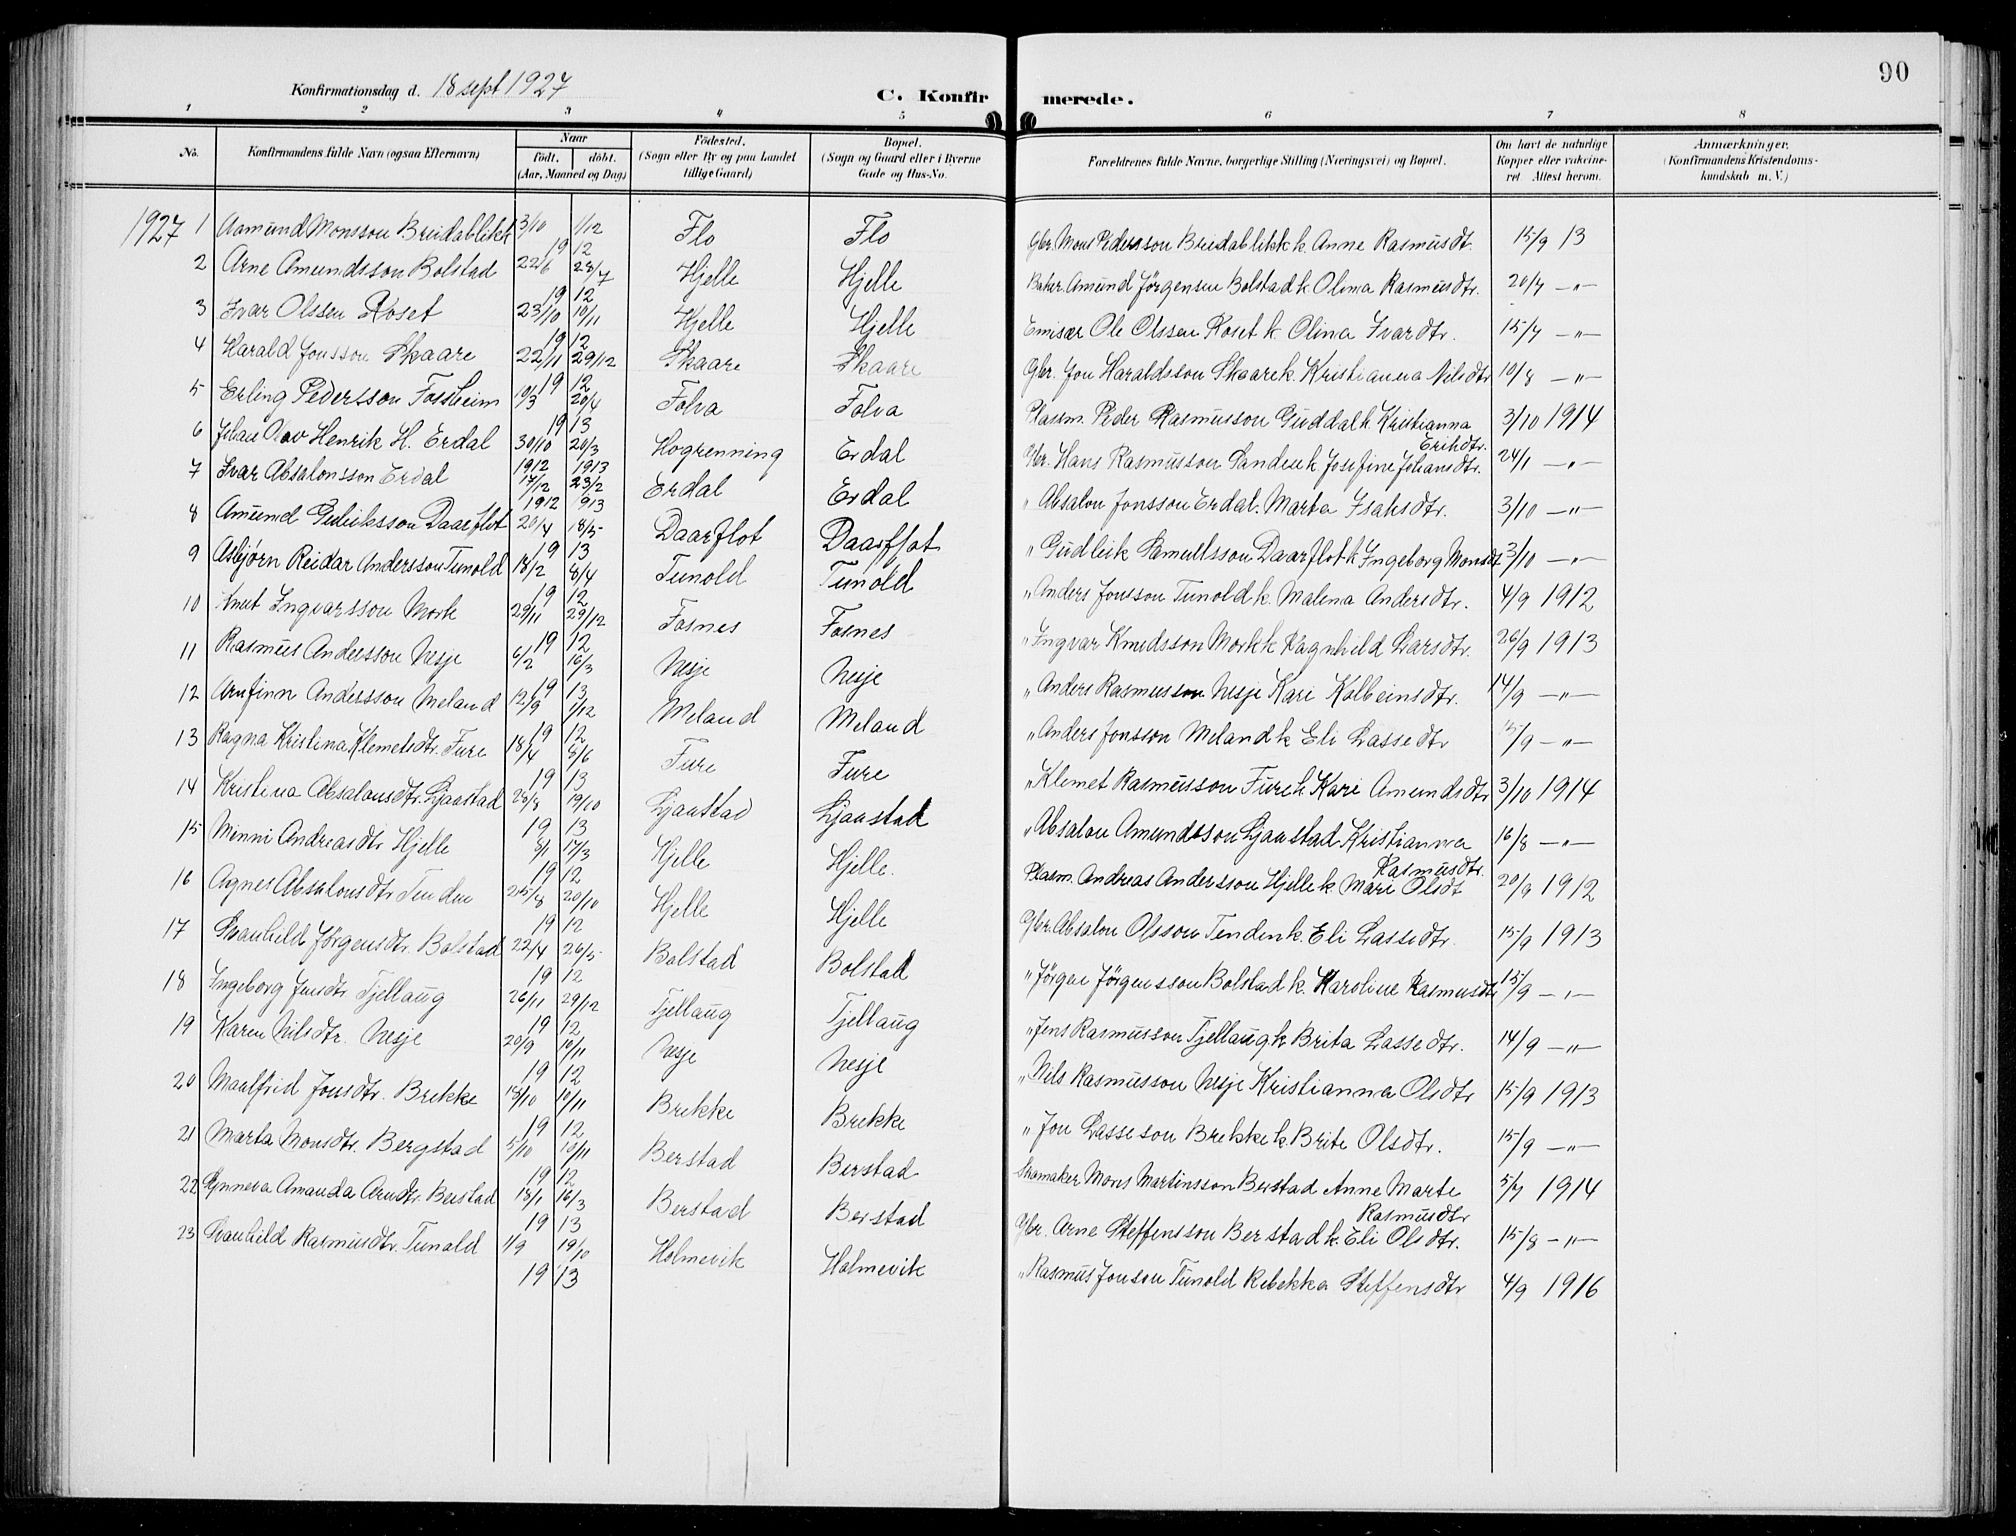 90
Konfirmationsdag d. 18 sept 1927
C. Konfirmerede.
1 2 3 4 5 6 7 8
No. Konfirmandens fulde Navn (ogsaa Efternavn) Naar födt. döbt. (Aar, Maaned og Dag) Födested. (Sogn eller By og paa Landet tillige Gaard) Bopæl. (Sogn og Gaard eller i Byerne Gade og Hus-No. Forældrenes fulde Navne, borgerlige Stilling (Næringsvei) og Bopæl. Om havt de naturlige Kopper eller vakcineret. Attest herom. Anmærkninger. (Konfirmandens Kristendomskundskab m. V.)
1927 1 Aamund Monsson Breidablikk 3/10 1/12 19 12 Flo Flo Gbr. Mons Pedersson Breidablikk k. Anne Rasmusdt. 15/9 13
2 Arne Amundsson Bolstad 22/6 28/7 19 12 Hjelle Hjelle Baker Amund Jörgensen Bolstad k. Olina Rasmusdtr. 20/7 —"—
3 Ivar Olssen Roset 23/10 10/11 19 12 Hjelle Hjelle Emisær Ole Olssen Roset k. Olina Ivardtr. 15/7 —"—
4 Harald Jonsson Skaare 22/11 29/12 19 12 Skaare Skaare Gbr. Jon Haraldsson Skaare k. Kristianna Nilsdtr 10/8 —"—
5 Erling Pedersson Fossheim 10/3 20/4 19 13 Folva Folva Plasm. Peder Rasmusson Guddal k Kristianna Erikdtr. 3/10 1914
6 Johan Olav Henrik H. Erdal 30/10 20/3 1912 1913 Hogrenning Erdal Gbr. Hans Rasmusson Sanden k Josefine Johansdtr. 24/1 —"—
7 Ivar Absalonsson Erdal 17/12 23/2 1912 913 Erdal Erdal " Absalon Jonsson Erdal. Marta Isaksdtr. 3/10 —"—
8 Amund Gudleiksson Daarflot 20/4 18/5 19 13 Daarflot Daarflot " Gudleik Samuelsson Daarflot k Ingeborg Monsdt. 3/10 —"—
9 Asbjørn Reidar Andersson Tunold 18/2 8/4 19 12 Tunold Tunold " Anders Jonsson Tunold k. Malena Andersdtr. 4/9 1912
10 Knut Ingvarsson Mork 29/11 29/12 19 12 Fosnes Fosnes " Ingvar Knudsson Mork k Ragnhild Larsdtr. 26/9 1913
11 Rasmus Andersson Nesje 6/2 16/3 19 13 Nesje Nesje " Anders Rasmusson Nesje Kari Kolbeinsdtr. 14/9 —"—
12 Arnfinn Andersson Meland 12/9 1/12 19 12 Meland Meland " Anders Jonsson Meland k Eli Lassedtr 15/9 —"—
13 Ragna Kristina Klemetsdtr. Fure 18/4 8/6 19 13 Fure Fure " Klemet Rasmusson Fure k Kari Amundsdtr 3/10 1914
14 Kristina Absalonsdtr. Ljaastad 25/8 19/10 19 13 Ljaastad Ljaastad " Absalon Amundsson Ljaastad Kristianna Rasmusdtr. 16/8 —"—
15 Minni Andreasdtr Hjelle 8/1 17/3 19 12 Hjelle Hjelle. Plasm. Andreas Andersson Hjelle k Mari Olsdt 20/9 1912
16 Agnes Absalonsdtr Tenden 25/8 20/10 19 12 Hjelle Hjelle Gbr. Absalon Olsson Tenden k. Eli Lassedtr. 15/9 1913
17 Svanhild Jørgensdtr. Bolstad 22/4 26/5 19 12 Bolstad Bolstad " Jørgen Jörgensson Bolstad k. Karoline Rasmusdtr 15/9 —"—
18 Ingeborg Jensdtr Tjellaug 26/11 29/12 19 12 Tjellaug Tjellaug " Jens Rasmusson Tjellaug k Brita Lassedtr. 14/9 —"—
19 Karen Nilsdtr. Nesje 20/9 10/11 19 12 Nesje Nesje " Nils Rasmusson Nesje Kristianna Olsdtr 15/9 1913
20 Maalfrid Jonsdtr. Brekke 13/10 10/11 19 12 Brekke Brekke " Jon Lasseson Brekke k. Brite Olsdtr. 15/9 —"—
21 Marta Monsdtr. Bergstad 5/10 10/11 19 12 Berstad Berstad Skomaker Mons Martinsson Berstad Anne Marte Rasmusdtr 5/7 1914
22 Synneva Amanda Arnedtr. Berstad 18/1 16/3 19 13 Berstad Berstad Gbr. Arne Steffensson Berstad k. Eli Olsdtr. 15/8 —"—
23 Svanhild Rasmusdtr. Tunold 1/9 19/10 19 13 Holmevik Holmevik " Rasmus Jonson Tunold Rebekka Steffensdtr 4/9 1916